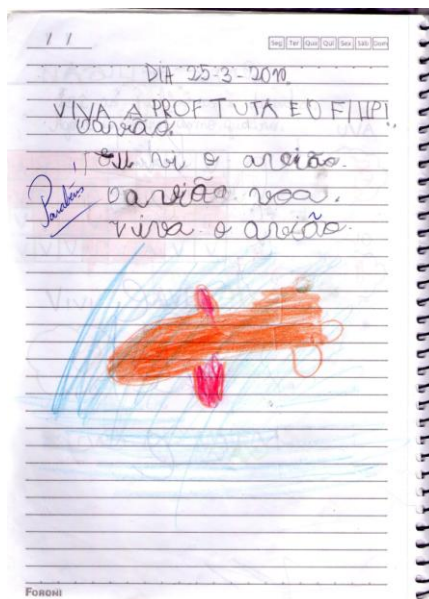 / /
Seg Ter Qua Qui Sex Sáb Dom
DIA 25-3-2010
VIVA A PROF TUTA E O FILIPI.
O avião.
Eu vi o avião.
Parabéns!
O avião voa.
Viva o avião.
FORONI